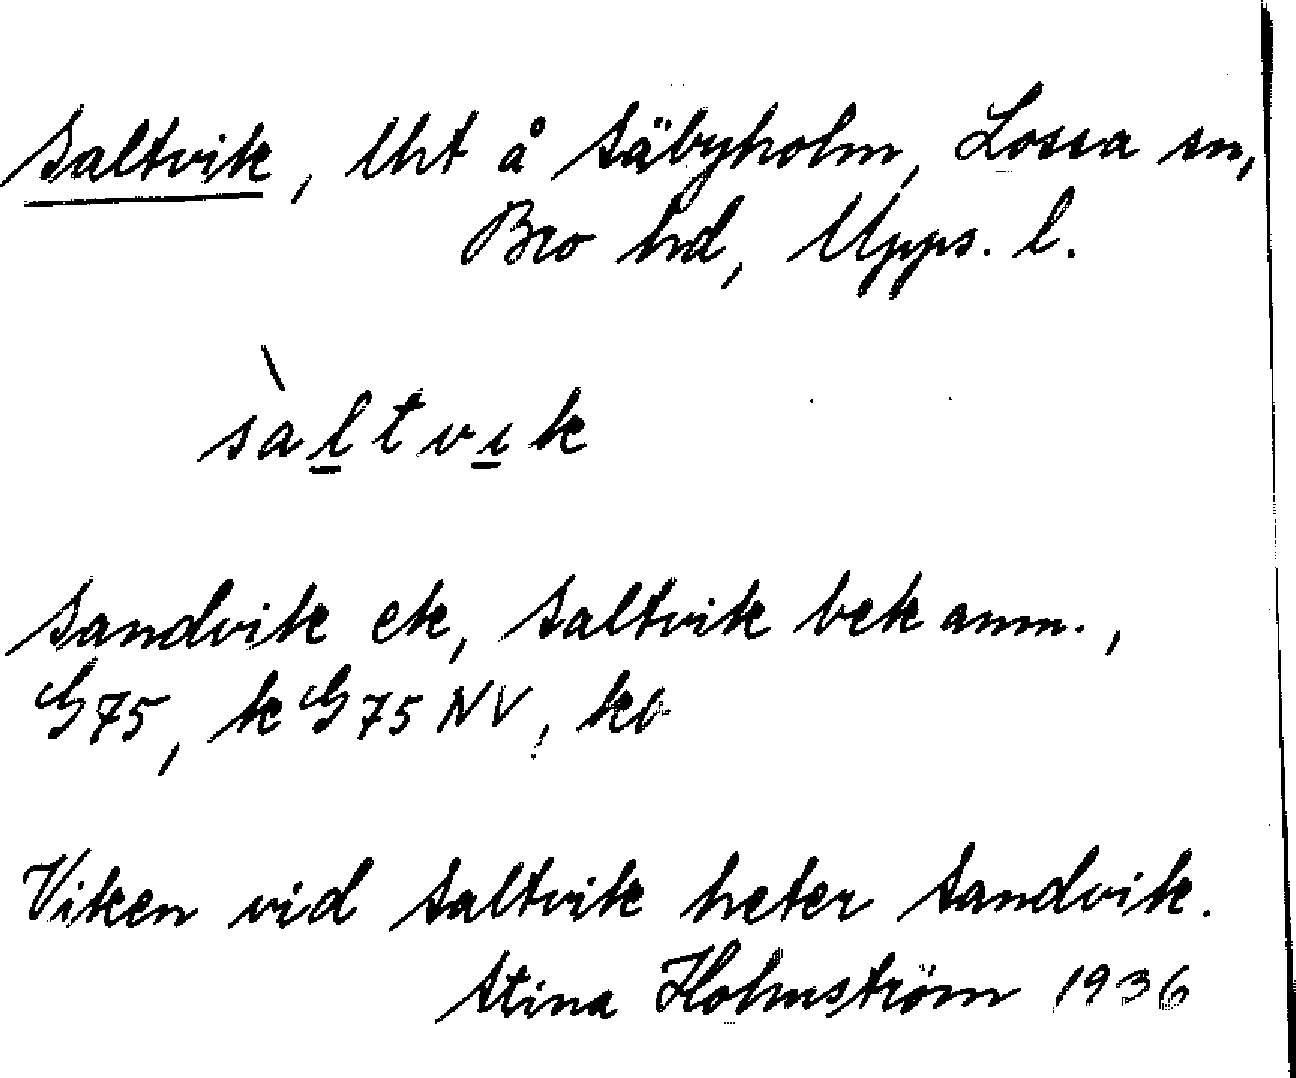 Saltvik, lht å Säbyholm, Lossa sn,
Bro hd, Upps. l.
sàltvik
Sandvik ek, Saltvik bek anm.,
G75, k G75 NV, ko
Viken vid Saltvik heter Sandvik.
Stina Holmström 1936